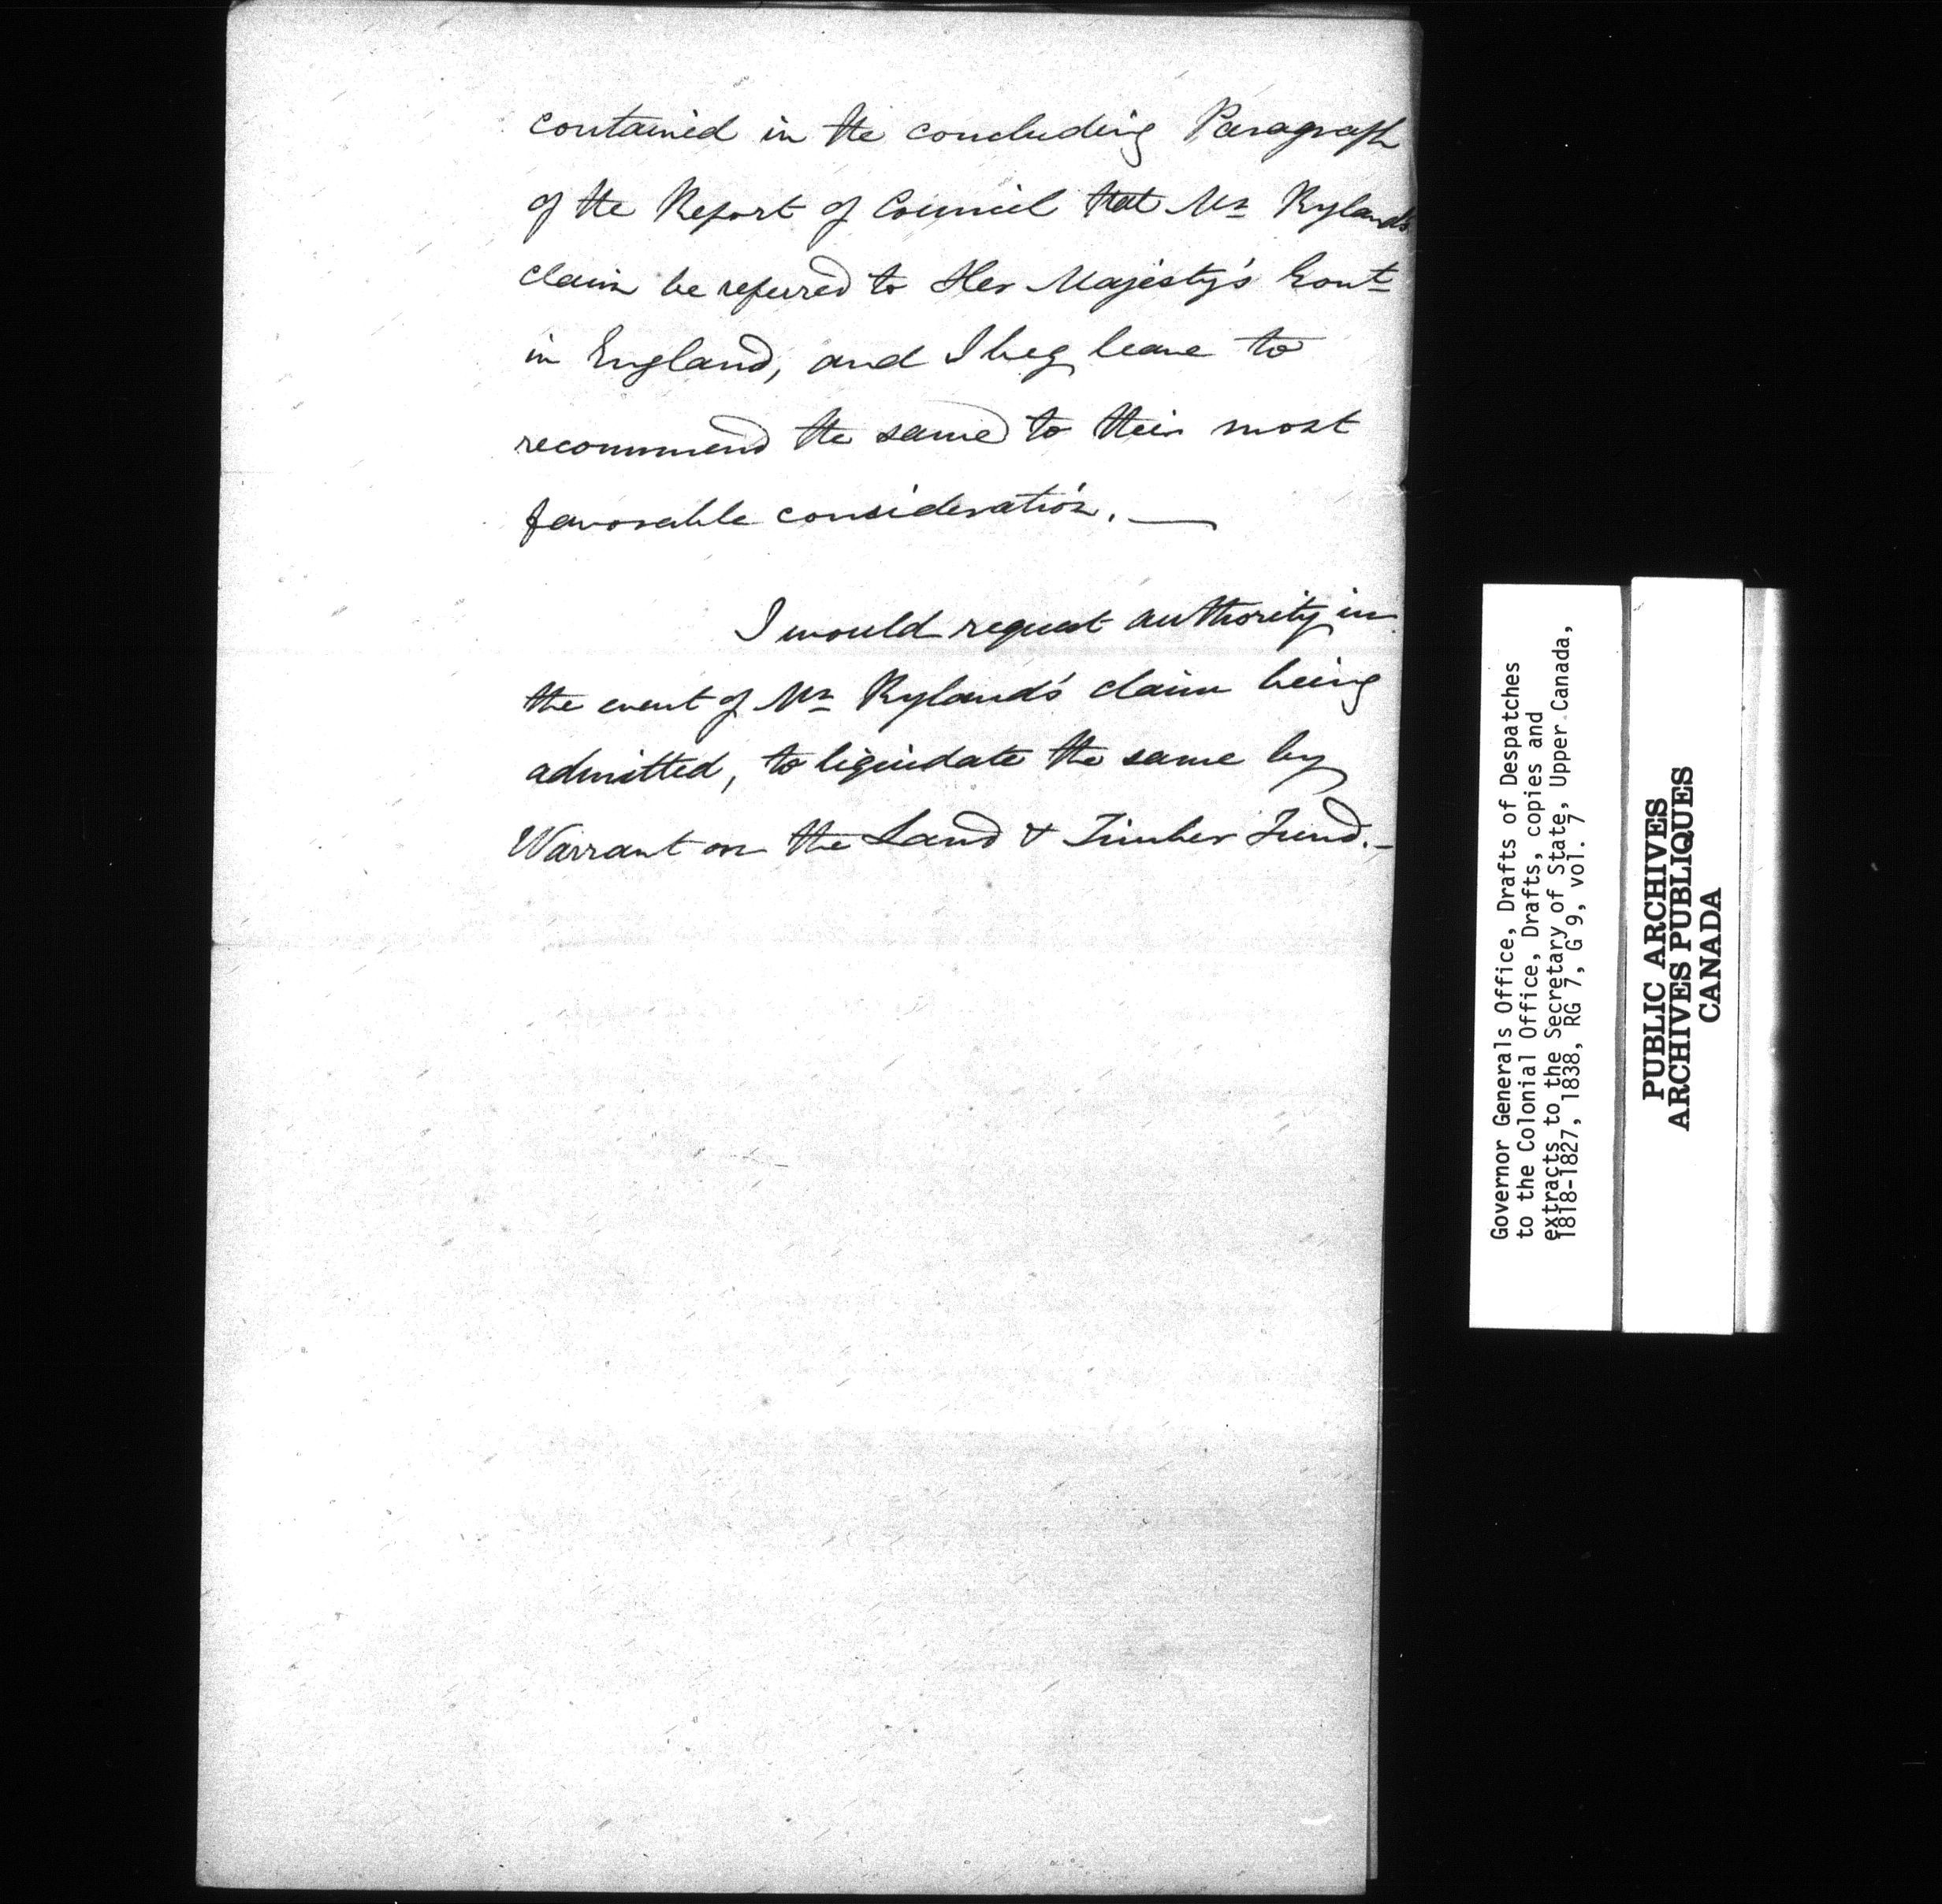 contained in the concluding Paragraph
of the Report of Council that Mr Ryland's
claim be referred to Her Majesty's Govt
in England, and I beg leave to
recommend the same to their most
favorable consideration. —
I would request authority in
the event of Mr Ryland's claim being
admitted, to liquidate the same by
Warrant on the Land & Timber Fund.-
Governor Generals Office, Drafts of Despatches
to the Colonial Office, Drafts, copies and
extracts to the Secretary of State, Upper Canada,
1818-1827, 1838, RG 7, G 9, vol. 7
PUBLIC ARCHIVES
ARCHIVES PUBLIQUES
CANADA